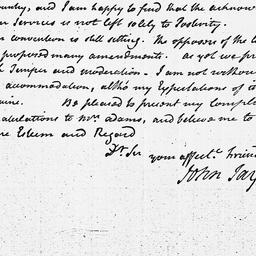 and I am happy to find that the acknow
Services is not left solely to Posterity.
convention is still setting. The opposers of the
proposed many amendments. as yet we pr
Temper and moderation. I am not withou
accommodation, altho my Expectations of
Be pleased to present my Compl
to Mrs adams, and believe me to
Esteem and Regard
Dr Sir
your affect. Friend
John Jay